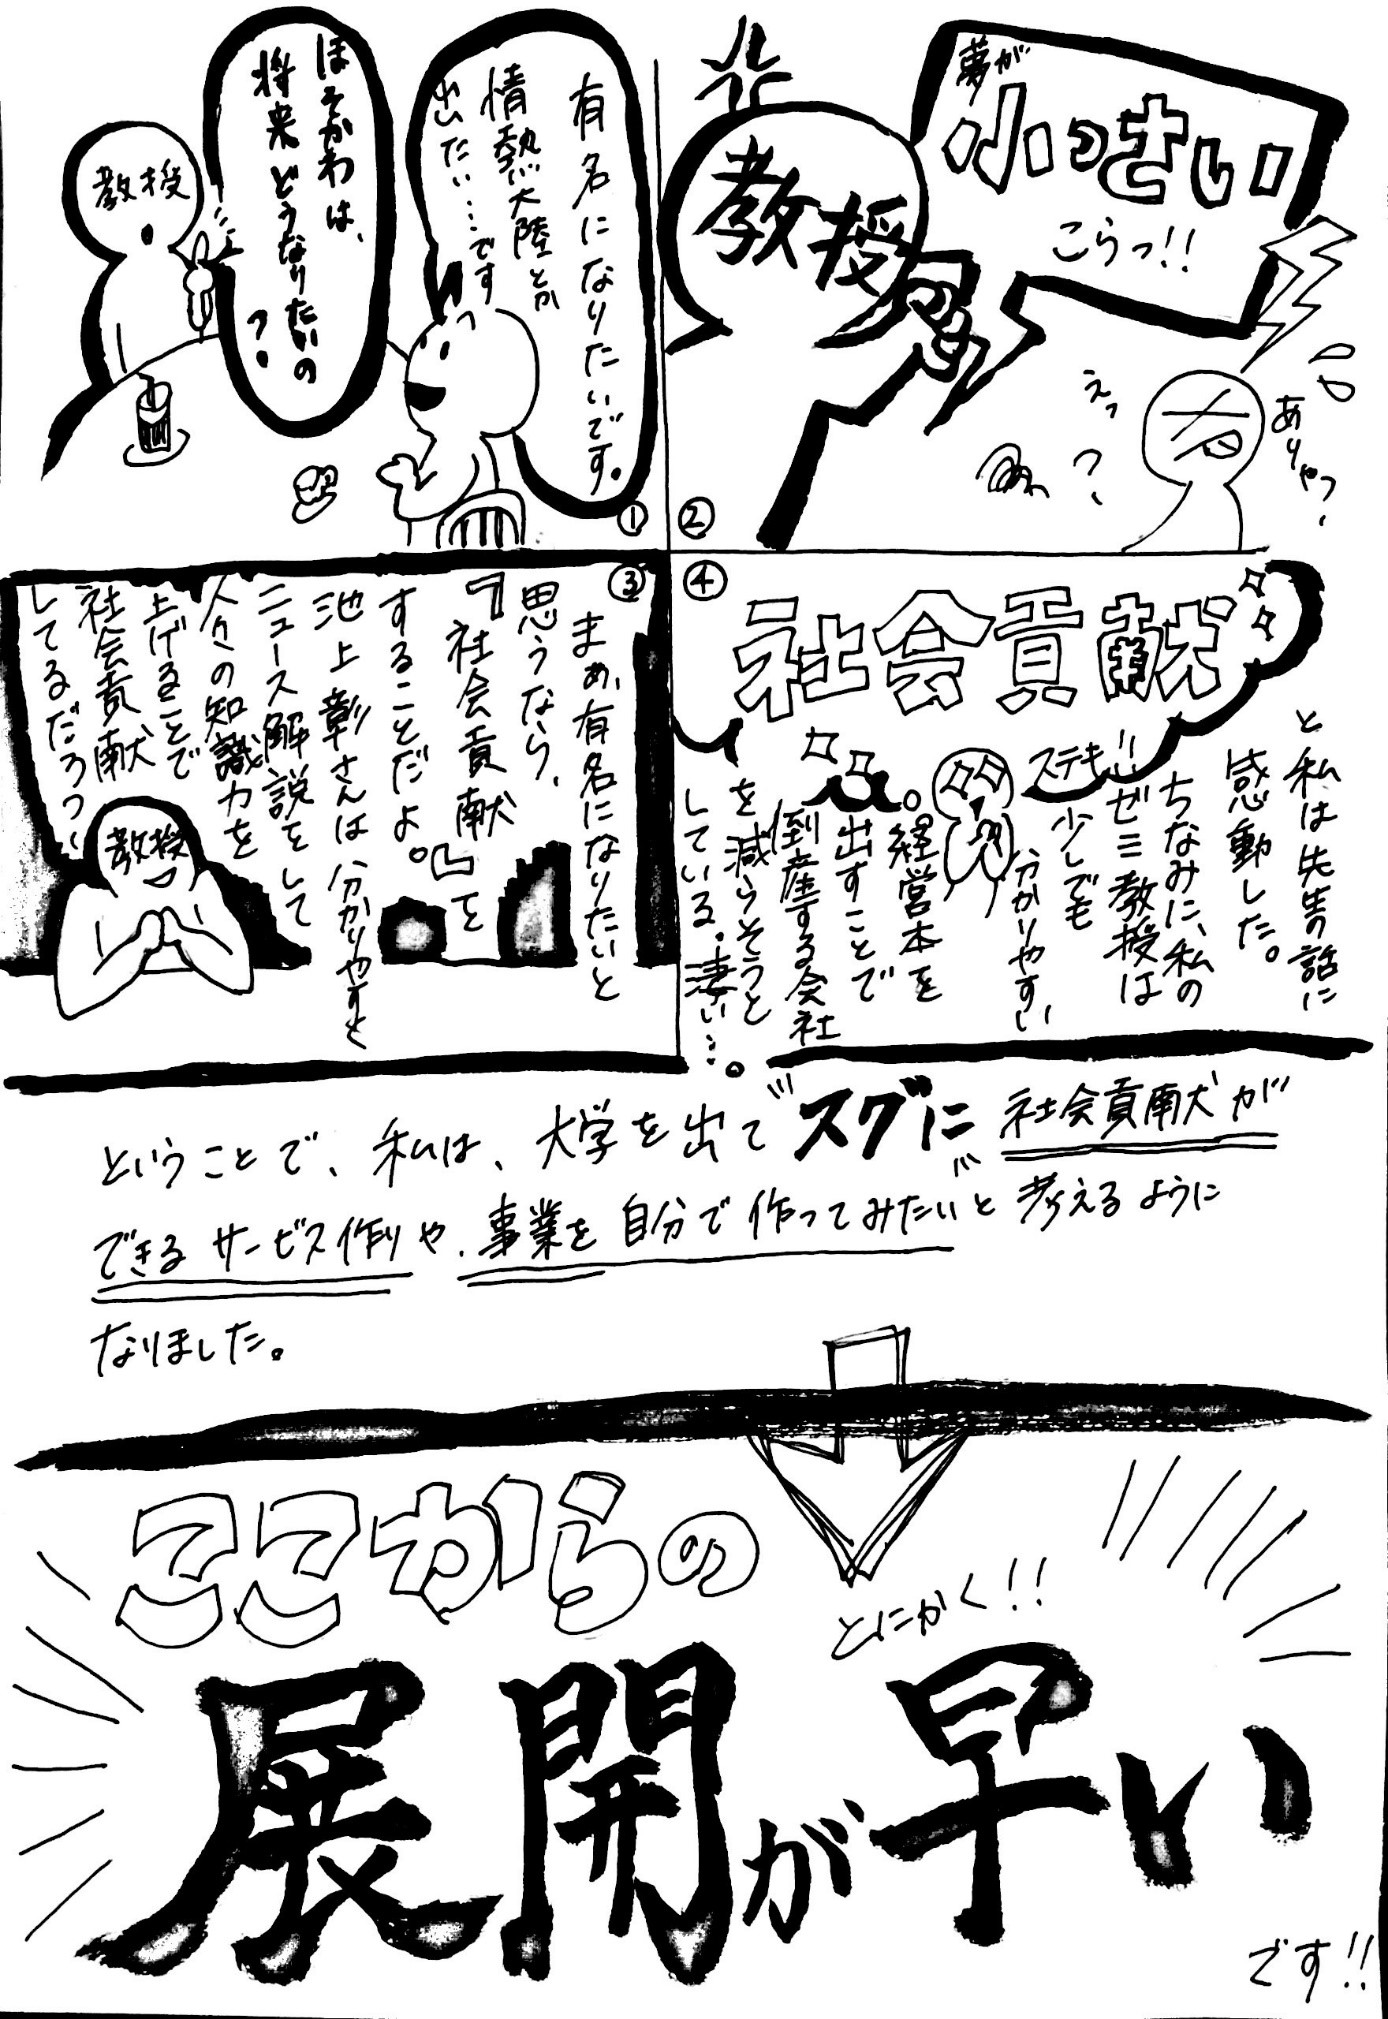 ほそかわは、
将来どうなりたいの
？
教授
有名になりたいです。
情熱大陸とか
出たい…です
①
②
夢が
小っさい
こらっ!!
教授
えっ
？
ありゃっ
③
まぁ、有名になりたいと
思うなら、
『社会貢献』を
することだよ。
池上彰さんは分かりやすく
ニュース解説をして
人々の知識力を
上げることで
社会貢献
してるだろう〜
教授
④
社会貢献
ステキ!!
と私は先生の話に
感動した。
ちなみに、私の
ゼミ教授は
少しでも
分かりやすい
経営本を
出すことで
倒産する会社
を減らそうと
している。凄い…。
ということで、私は、大学を出て"スグに"社会貢献が
できるサービス作りや、事業を自分で作ってみたいと考えるように
なりました。
ここからの
とにかく!!
展開が早い
です!!